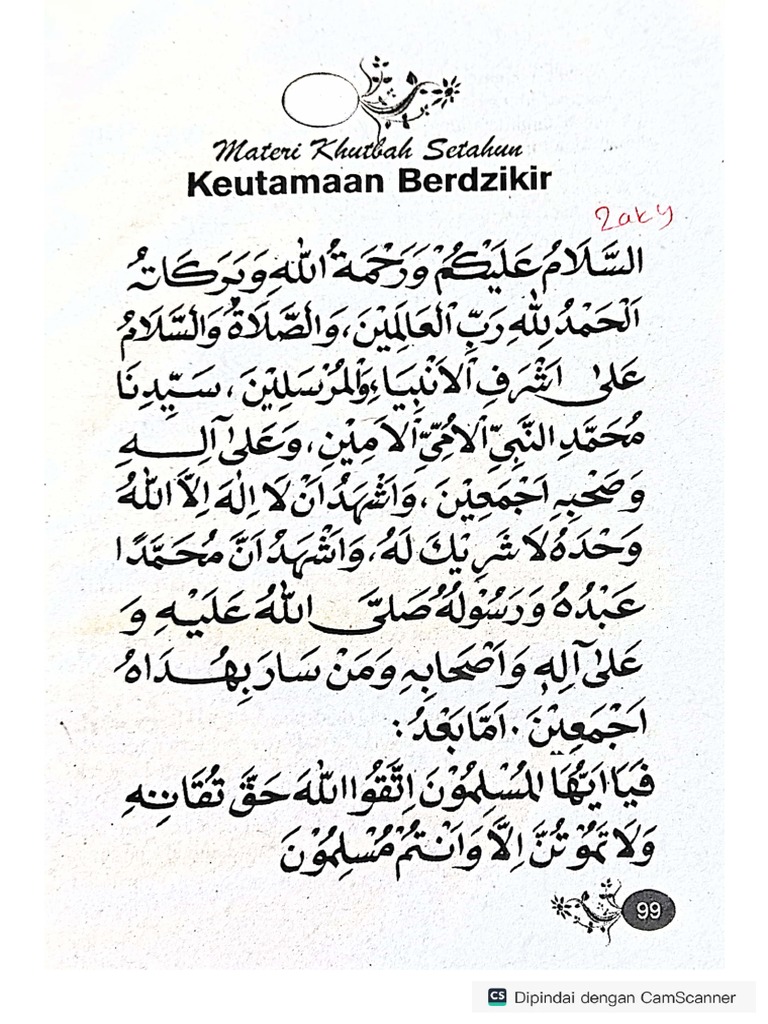 Materi Khutbah Setahun
Keutamaan Berdzikir
Zaky
السَّلَامُ عَلَيْكُمْ وَرَحْمَةُ اللّٰهِ وَبَرَكَاتُهُ
اَلْحَمْدُ لِلّٰهِ رَبِّ الْعَالَمِيْنَ، وَالصَّلَاةُ وَالسَّلَامُ
عَلٰى اَشْرَفِ الْاَنْبِيَاءِ وَالْمُرْسَلِيْنَ، سَيِّدِنَا
مُحَمَّدِ النَّبِيِّ الْاُمِّيِّ الْاَمِيْنِ، وَعَلٰى آلِهِ
وَصَحْبِهِ اَجْمَعِيْنَ، وَاَشْهَدُ اَنْ لَا اِلٰهَ اِلَّا اللّٰهُ
وَحْدَهُ لَا شَرِيْكَ لَهُ، وَاَشْهَدُ اَنَّ مُحَمَّدًا
عَبْدُهُ وَرَسُوْلُهُ صَلَّى اللّٰهُ عَلَيْهِ وَ
عَلٰى آلِهِ وَاَصْحَابِهِ وَمَنْ سَارَ بِهُدَاهُ
اَجْمَعِيْنَ. اَمَّا بَعْدُ:
فَيَا اَيُّهَا الْمُسْلِمُوْنَ اِتَّقُوا اللّٰهَ حَقَّ تُقَاتِهِ
وَلَا تَمُوْتُنَّ اِلَّا وَاَنْتُمْ مُسْلِمُوْنَ
99
CS Dipindai dengan CamScanner